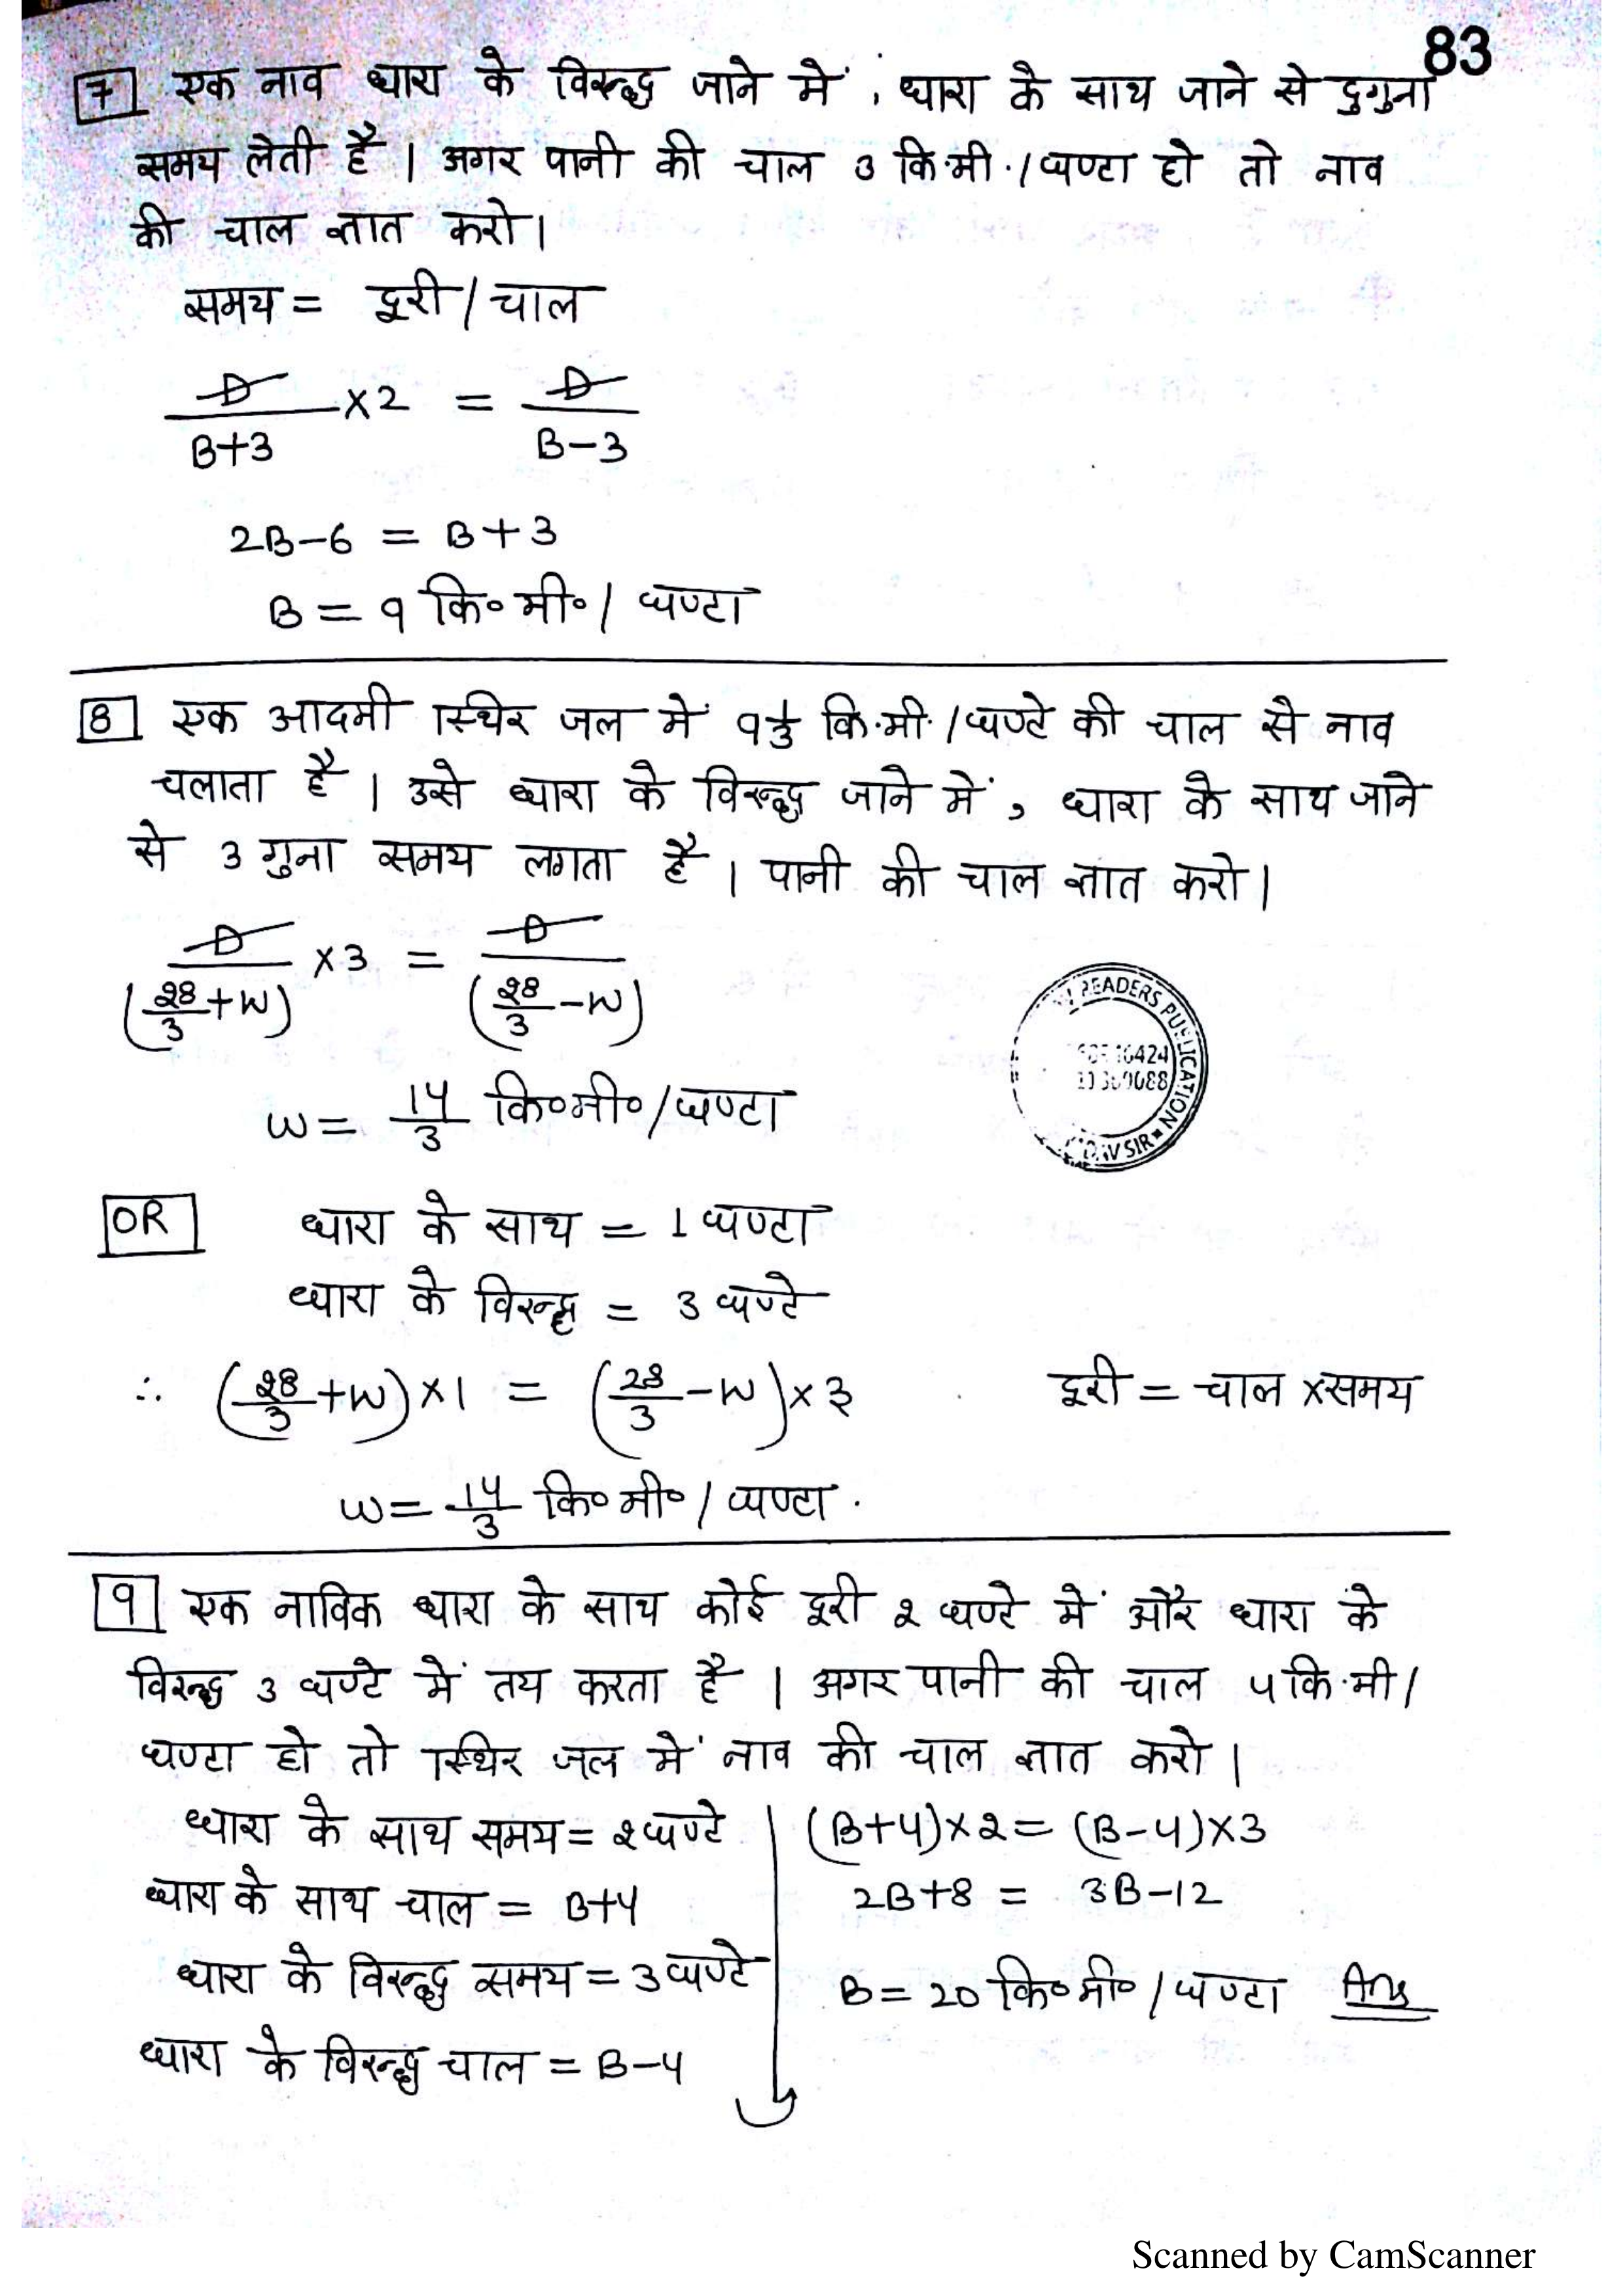 83
7 एक नाव धारा के विरूद्ध जाने में, धारा के साथ जाने से दुगुना
समय लेती है। अगर पानी की चाल 3 कि.मी./घण्टा हो तो नाव
की चाल ज्ञात करो।
समय = दूरी / चाल
D/(B+3) ×2 = D/(B-3)
2B-6 = B+3
B = 9 कि॰मी॰/घण्टा
8 एक आदमी स्थिर जल में 9 1/3 कि.मी./घण्टे की चाल से नाव
चलाता है। उसे धारा के विरूद्ध जाने में, धारा के साथ जाने
से 3 गुना समय लगता है। पानी की चाल ज्ञात करो।
D/(28/3+W) ×3 = D/(28/3-W)
READERS PUBLICATION
W = 14/3 कि॰मी॰/घण्टा
OR धारा के साथ = 1 घण्टा
धारा के विरूद्ध = 3 घण्टे
∴ (28/3+W)×1 = (28/3-W)×3 दूरी = चाल ×समय
W = 14/3 कि॰मी॰/घण्टा.
9 एक नाविक धारा के साथ कोई दूरी 2 घण्टे में और धारा के
विरूद्ध 3 घण्टे में तय करता है। अगर पानी की चाल 4 कि.मी/
घण्टा हो तो स्थिर जल में नाव की चाल ज्ञात करो।
धारा के साथ समय = 2 घण्टे
धारा के साथ चाल = B+4
धारा के विरूद्ध समय = 3 घण्टे
धारा के विरूद्ध चाल = B-4
(B+4)×2 = (B-4)×3
2B+8 = 3B-12
B = 20 कि॰मी॰/घण्टा Ans
Scanned by CamScanner